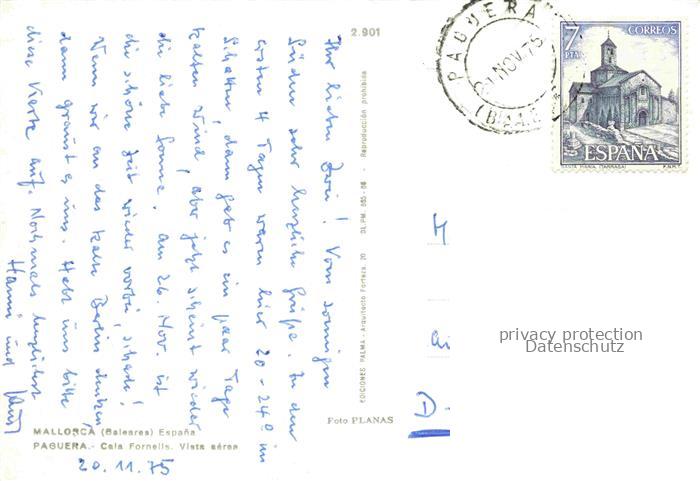 2.901
Ihr lieben Zwei! Vom sonnigen
Süden sehr herzliche Grüße. In den
ersten 4 Tagen waren hier 20-24° im
Schatten, dann gab es ein paar Tage
kalten Wind, aber jetzt scheint wieder
die liebe Sonne. Am 26. Nov. ist
die schöne Zeit wieder vorbei, schade!
Wenn wir an das kalte Berlin denken,
dann graust es uns. Hebt uns bitte
diese Karte auf. Nochmals herzlichst
Hanni und
MALLORCA (Baleares) España
PAGUERA.- Cala Fornells. Vista aérea
20.11.75
Foto PLANAS
EDICIONES PALMA - Arquitecto Forteza, 20 DL.PM. - Reproducción prohibida
PAGUERA
NOV. 75
7 PTA
CORREOS
ESPAÑA
SANTA MARIA (TARRASA) F.N.M.T.
D-
privacy protection
Datenschutz